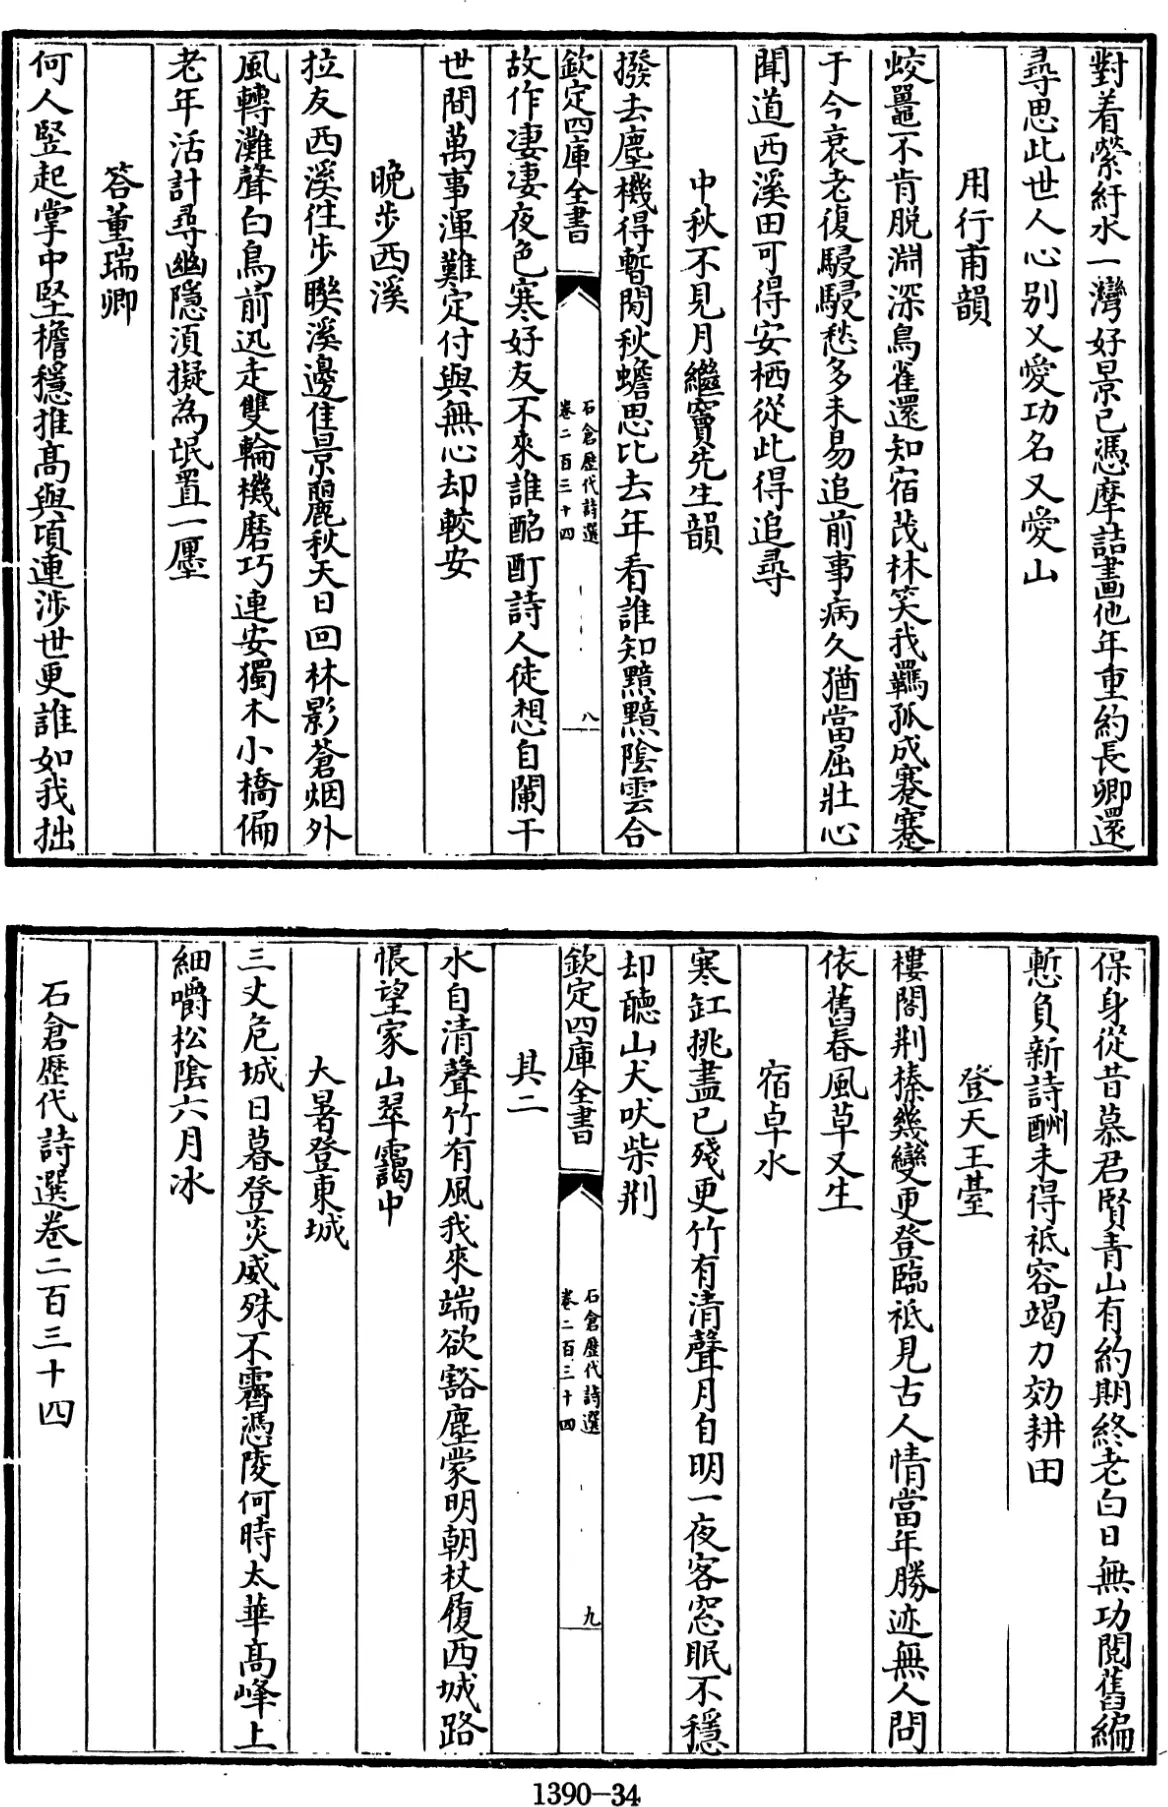 對着縈紆水一灣好景已憑摩詰畫他年重約長卿還
尋思此世人心别又愛功名又愛山
用行甫韻
蛟鼉不肯脱淵深鳥雀還知宿茂林笑我羈孤成蹇蹇
于今衰老復駸駸愁多未易追前事病久猶當屈壯心
聞道西溪田可得安栖從此得追尋
中秋不見月繼竇先生韻
撥去塵機得暫閒秋蟾思比去年看誰知黯黯陰雲合
欽定四庫全書
石倉歷代詩選
卷二百三十四
八
故作凄凄夜色寒好友不來誰酩酊詩人徒想自闌干
世間萬事渾難定付與無心却較安
晚步西溪
拉友西溪徃步聨溪邊佳景麗秋天日回林影蒼烟外
風轉灘聲白鳥前迅走雙輪機磨巧連安獨木小橋偏
老年活計尋幽隱須擬為氓置一㕓
答董瑞卿
何人豎起掌中堅檐穩推髙與項連涉世更誰如我拙
保身從昔慕君賢青山有約期終老白日無功閲舊編
慙負新詩酬未得祗容竭力効耕田
登天王臺
樓閣荆榛幾變更登臨祗見古人情當年勝迹無人問
依舊春風草又生
宿卓水
寒缸挑盡已殘更竹有清聲月自明一夜客窓眠不穩
却聽山犬吠柴荆
欽定四庫全書
石倉歷代詩選
卷二百三十四
九
其二
水自清聲竹有風我來端欲豁塵蒙明朝杖履西城路
悵望家山翠靄中
大暑登東城
三丈危城日暮登炎威殊不霽憑陵何時太華髙峰上
細嚼松陰六月冰
石倉歷代詩選卷二百三十四
1390-34